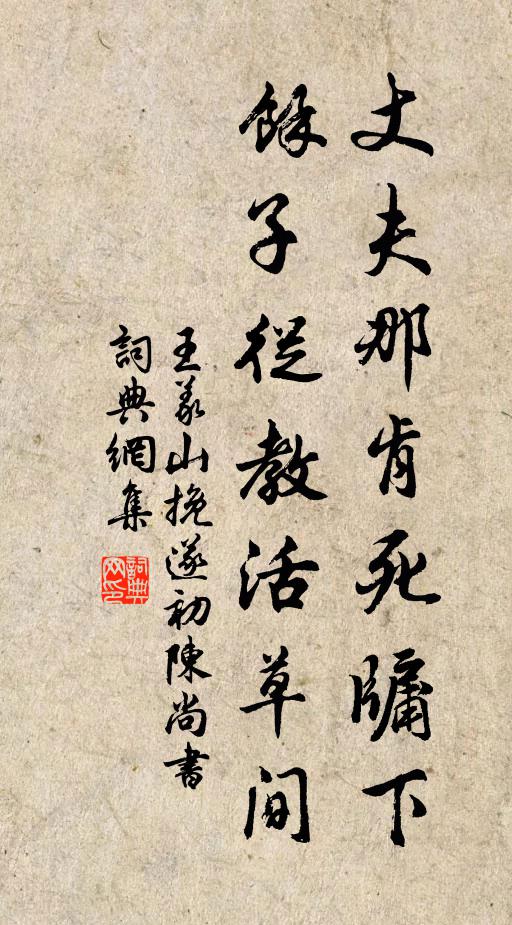 丈夫那肯死牖下
餘子從教活草間
王義山挽遂初陳尚書
詞典網集
詞典網印